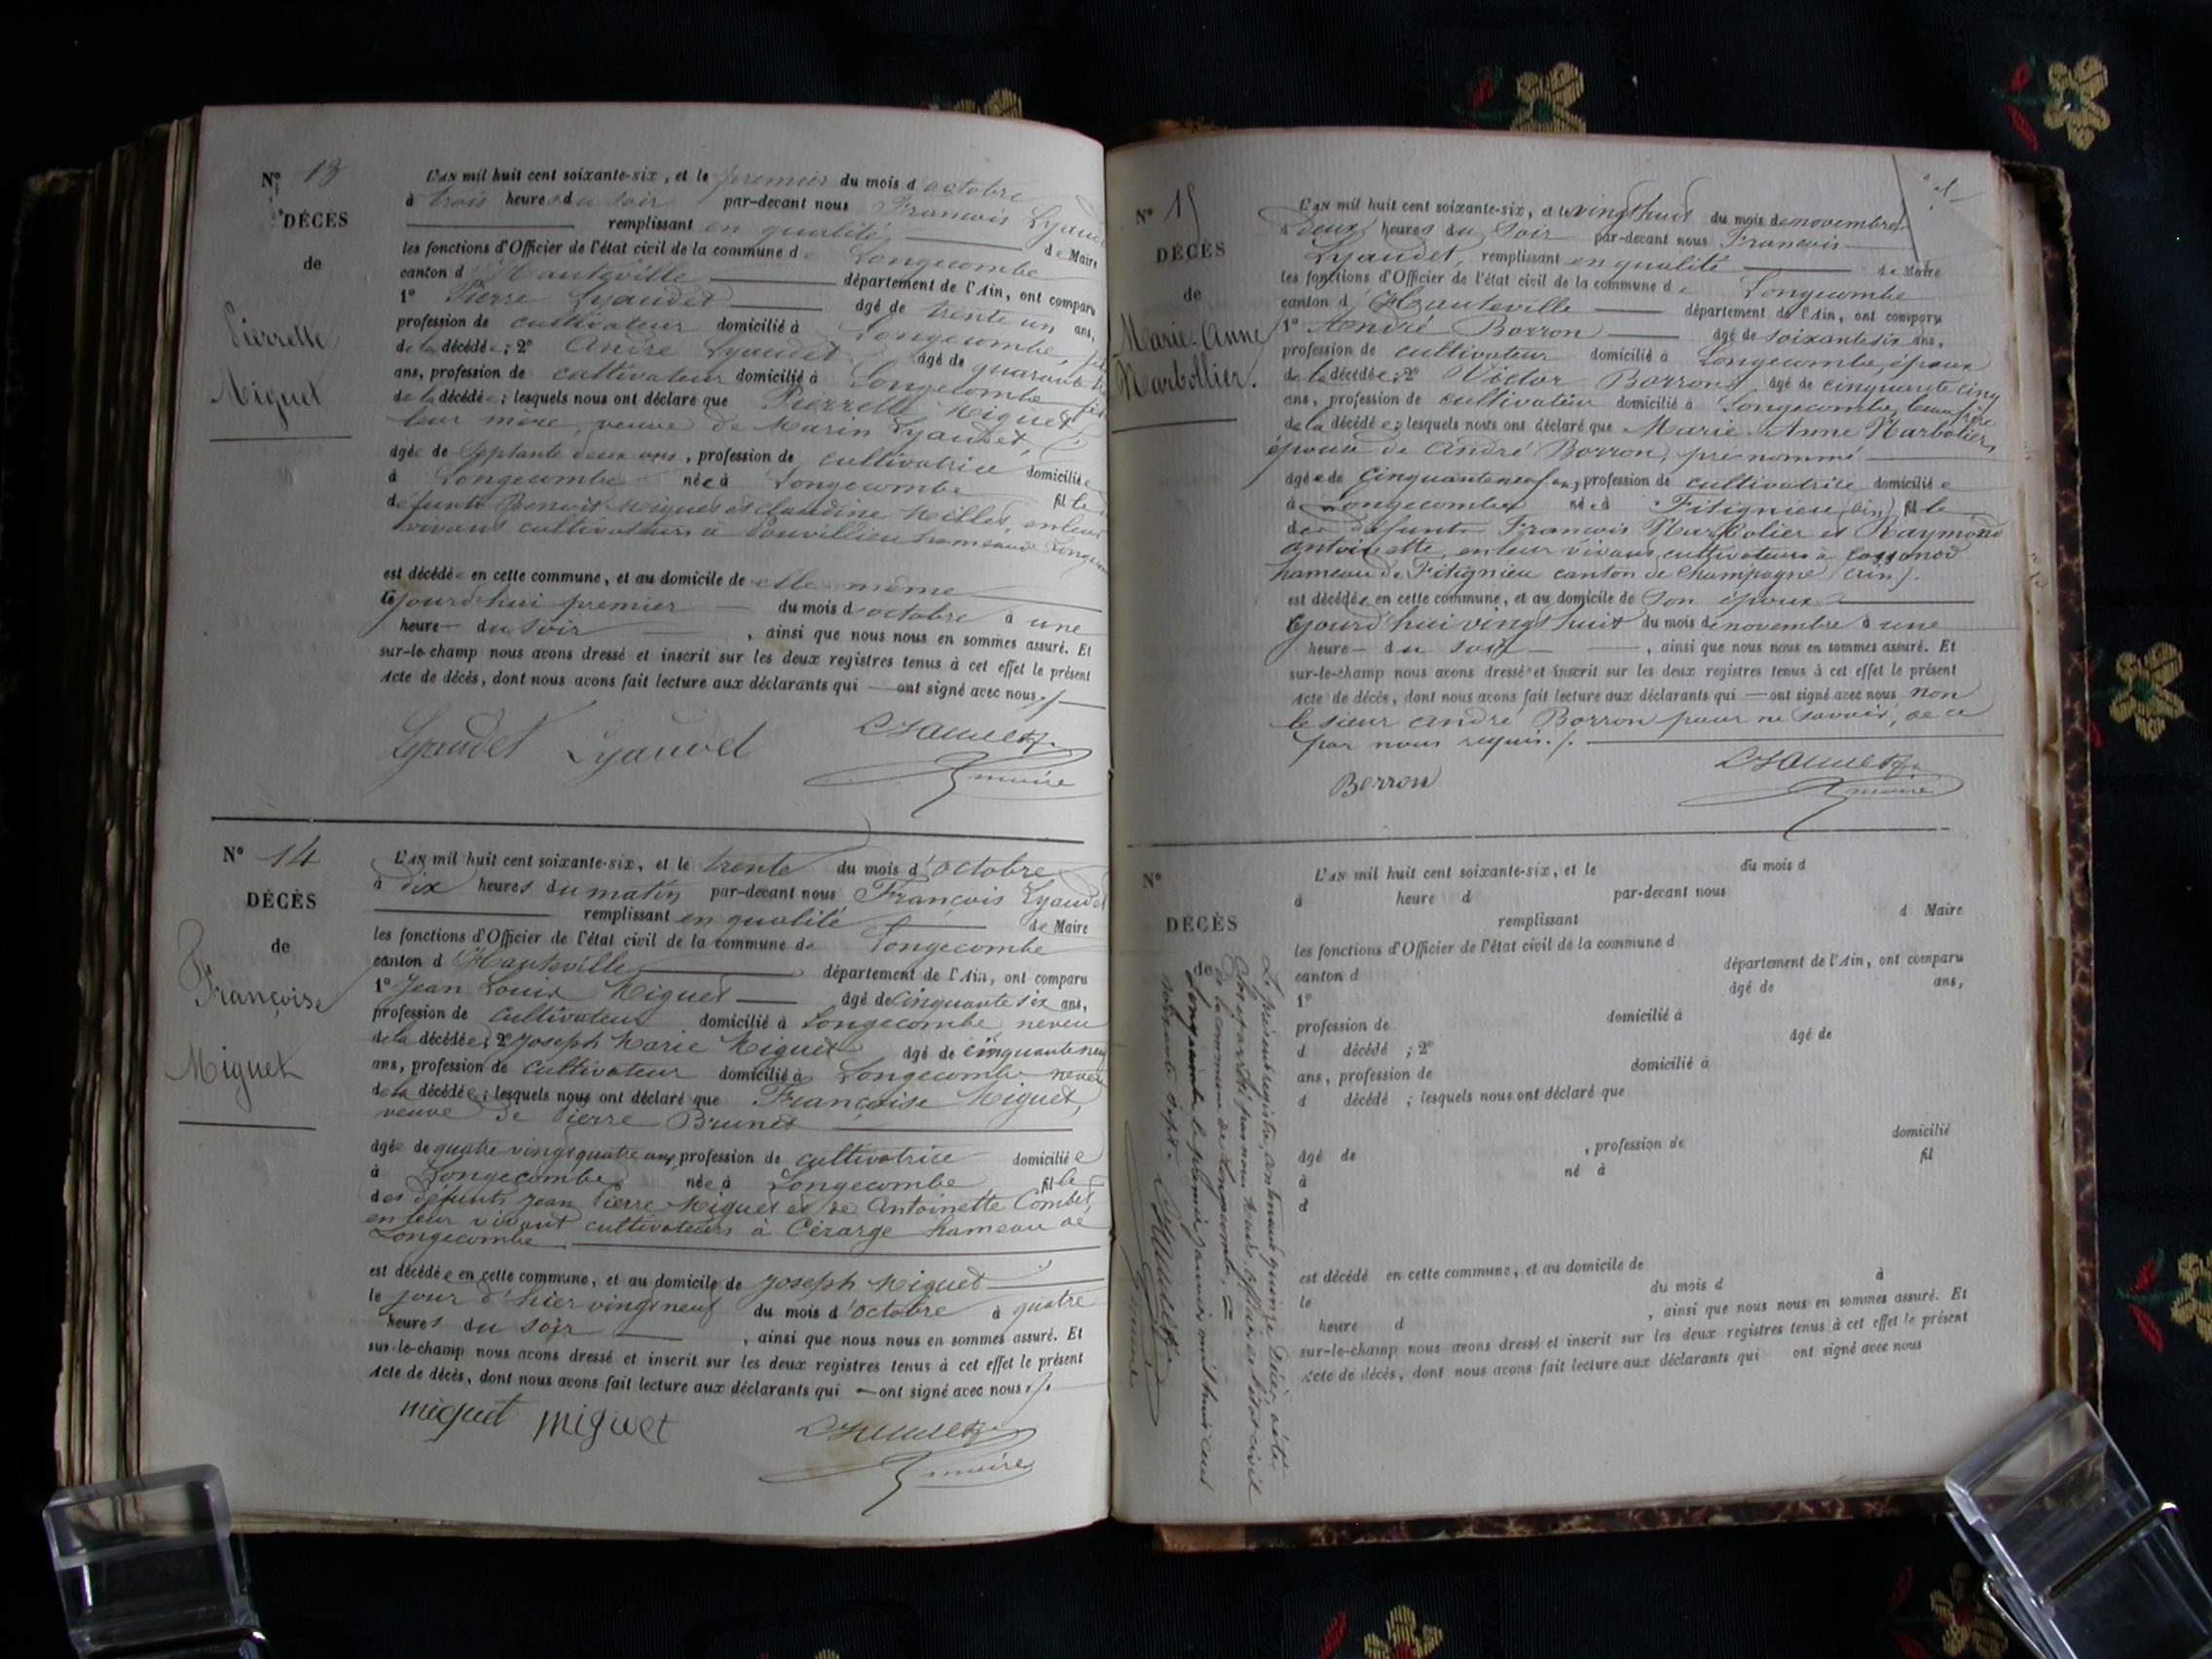 N° 13
DÉCÈS
de
Pierrette
Miguet
L'AN mil huit cent soixante-six, et le premier du mois d'octobre
à trois heures du soir par-devant nous François Lyaudet
remplissant en qualité de Maire
les fonctions d'Officier de l'état civil de la commune de Longecombe
canton d'Hauteville département de l'Ain, ont comparu
1° Pierre Lyaudet âgé de trente un ans,
profession de cultivateur domicilié à Longecombe, fils
de la décédée; 2° André Lyaudet âgé de quarante
ans, profession de cultivateur domicilié à Longecombe fils
de la décédée; lesquels nous ont déclaré que Pierrette Miguet
leur mère, veuve de Marin Lyaudet,
âgée de Septante deux ans, profession de cultivatrice domiciliée
à Longecombe née à Longecombe fille
défunts Benoit Miguet et Claudine Millet, en leur
vivant cultivateurs à hameau
est décédée en cette commune, et au domicile de elle même
ce jourd'hui premier du mois d'octobre à une
heure du soir, ainsi que nous nous en sommes assuré. Et
sur-le-champ nous avons dressé et inscrit sur les deux registres tenus à cet effet le présent
Acte de décès, dont nous avons fait lecture aux déclarants qui ont signé avec nous./.
Lyaudet Lyaudet
maire
N° 14
DÉCÈS
de
Françoise
Miguet
L'AN mil huit cent soixante-six, et le trente du mois d'octobre
à dix heures du matin par-devant nous François Lyaudet
remplissant en qualité de Maire
les fonctions d'Officier de l'état civil de la commune de Longecombe
canton d'Hauteville département de l'Ain, ont comparu
1° Jean Louis Miguet âgé de cinquante six ans,
profession de cultivateur domicilié à Longecombe neveu
de la décédée; 2° Joseph Marie Miguet âgé de cinquante neuf
ans, profession de cultivateur domicilié à Longecombe neveu
de la décédée; lesquels nous ont déclaré que Françoise Miguet,
veuve de Pierre Brunet
âgée de quatre vingt quatre ans profession de cultivatrice domiciliée
à Longecombe née à Longecombe fille
des défunts Jean Pierre Miguet et de Antoinette Combet,
en leur vivant cultivateurs à Cérarge hameau de
Longecombe
est décédée en cette commune, et au domicile de Joseph Miguet
le jour d'hier vingt neuf du mois d'octobre à quatre
heures du soir, ainsi que nous nous en sommes assuré. Et
sur-le-champ nous avons dressé et inscrit sur les deux registres tenus à cet effet le présent
Acte de décès, dont nous avons fait lecture aux déclarants qui ont signé avec nous./.
miguet miguet
maire
N° 15
DÉCÈS
de
Marie-Anne
Narbollier.
L'AN mil huit cent soixante-six, et le vingt huit du mois de novembre
à deux heures du soir par-devant nous François
Lyaudet, remplissant en qualité de Maire
les fonctions d'Officier de l'état civil de la commune de Longecombe
canton d'Hauteville département de l'Ain, ont comparu
1° André Borron âgé de soixante six ans,
profession de cultivateur domicilié à Longecombe, époux
de la décédée; 2° Victor Borron, âgé de cinquante cinq
ans, profession de cultivateur domicilié à Longecombe, beau frère
de la décédée; lesquels nous ont déclaré que Marie-Anne Narbolier,
épouse de André Borron, prénommé
âgée de cinquante neuf ans, profession de cultivatrice domiciliée
à Longecombe née à Fitignieu (ain) fille
de défunt François Narbolier et Raymond
antoinette, en leur vivant cultivateurs à
hameau de Fitignieu canton de Champagne (ain).
est décédée en cette commune, et au domicile de Son époux
Cejourd'hui vingt huit du mois de novembre à une
heure du soir, ainsi que nous nous en sommes assuré. Et
sur-le-champ nous avons dressé et inscrit sur les deux registres tenus à cet effet le présent
Acte de décès, dont nous avons fait lecture aux déclarants qui ont signé avec nous non
le sieur André Borron pour ne savoir, de ce
par nous requis./.
Borron
maire
N°
DÉCÈS
de
L'AN mil huit cent soixante-six, et le du mois d
à heure d par-devant nous
remplissant d Maire
les fonctions d'Officier de l'état civil de la commune d
canton d département de l'Ain, ont comparu
1° âgé de ans,
profession de domicilié à
d décédé ; 2° âgé de
ans, profession de domicilié à
d décédé ; lesquels nous ont déclaré que
âgé de , profession de domicilié
à né à fil
d
est décédé en cette commune, et au domicile de
le du mois d à
heure d , ainsi que nous nous en sommes assuré. Et
sur-le-champ nous avons dressé et inscrit sur les deux registres tenus à cet effet le présent
Acte de décès, dont nous avons fait lecture aux déclarants qui ont signé avec nous
Le présent registre, contenant quinze Décès, a été
Clos et arrêté par nous Maire officier de l'état civil
de la commune de Longecombe, =
Longecombe le premier janvier mil huit cent
soixante sept.
maire